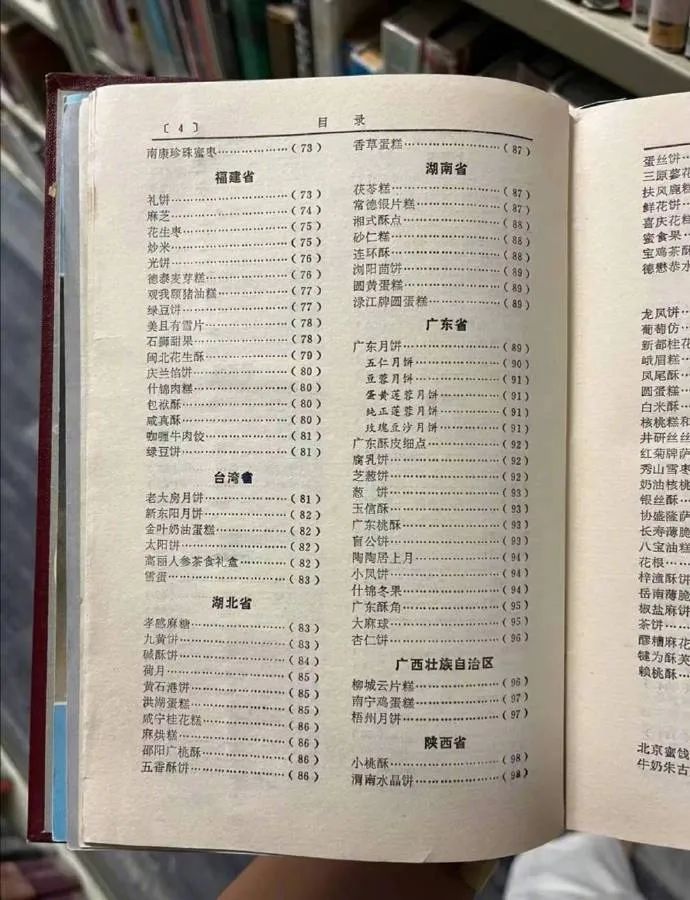 〔4〕 目 录
南康珍珠蜜枣……………(73)
福建省
礼饼……………(73)
麻芝……………(74)
花生枣……………(75)
炒米……………(75)
光饼……………(76)
德泰麦芽糕……………(76)
观我颐猪油糕……………(77)
绿豆饼……………(77)
美且有雪片……………(78)
石狮甜果……………(78)
闽北花生酥……………(79)
庆兰馅饼……………(80)
什锦肉糕……………(80)
包袱酥……………(80)
咸真酥……………(80)
咖喱牛肉饺……………(81)
绿豆饼……………(81)
台湾省
老大房月饼……………(81)
新东阳月饼……………(82)
金叶奶油蛋糕……………(82)
太阳饼……………(82)
高丽人参茶食礼盒……………(82)
雪蛋……………(83)
湖北省
孝感麻糖……………(83)
九黄饼……………(83)
碱酥饼……………(84)
荷月……………(85)
黄石港饼……………(85)
洪湖蛋糕……………(85)
咸宁桂花糕……………(86)
麻烘糕……………(86)
邵阳广桃酥……………(86)
五香酥饼……………(86)
香草蛋糕……………(87)
湖南省
茯苓糕……………(87)
常德银片糕……………(87)
湘式酥点……………(88)
砂仁糕……………(88)
连环酥……………(88)
浏阳茴饼……………(89)
圆黄蛋糕……………(89)
渌江牌圆蛋糕……………(89)
广东省
广东月饼……………(89)
五仁月饼……………(90)
豆蓉月饼……………(91)
蛋黄莲蓉月饼……………(91)
纯正莲蓉月饼……………(91)
玫瑰豆沙月饼……………(91)
广东酥皮细点……………(92)
腐乳饼……………(92)
芝葱饼……………(92)
葱 饼……………(93)
玉信酥……………(93)
广东桃酥……………(93)
盲公饼……………(93)
陶陶居上月……………(94)
小凤饼……………(94)
什锦冬果……………(94)
广东酥角……………(95)
大麻球……………(95)
杏仁饼……………(96)
广西壮族自治区
柳城云片糕……………(96)
南宁鸡蛋糕……………(97)
梧州月饼……………(97)
陕西省
小桃酥……………(98)
渭南水晶饼……………(98)
蛋丝饼
三原蓼花
扶风鹿糕
鲜花饼
喜庆花糕
蜜食果
宝鸡茶酥
德懋恭水
龙凤饼
葡萄仿
新都桂花
峨眉糕
凤尾酥
圆蛋糕
白米酥
核桃糕和
井研丝丝
红菊牌萨
秀山雪枣
奶油核桃
银丝酥
协盛隆萨
长寿薄脆
八宝油糕
花根
梓潼酥饼
岳南薄脆
椒盐麻饼
茶饼
醪糟麻花
犍为酥芙
赖桃酥
北京蜜饯
牛奶朱古